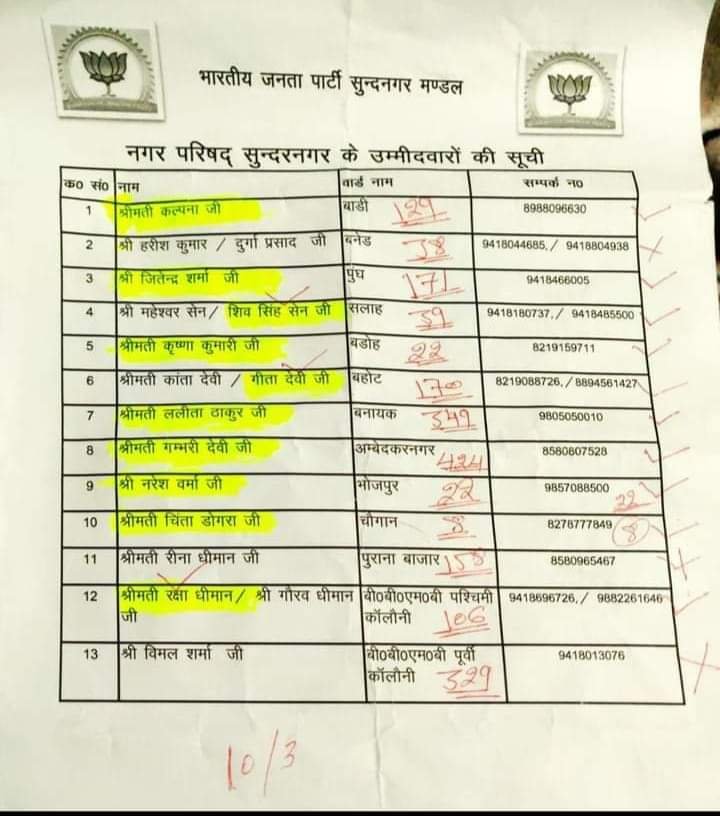 भारतीय जनता पार्टी सुन्दनगर मण्डल
नगर परिषद् सुन्दरनगर के उम्मीदवारों की सूची
क0 सं0 नाम वार्ड नाम सम्पर्क न0
1 श्रीमती कल्पना जी बाडी 129 8988096630
2 श्री हरीश कुमार / दुर्गा प्रसाद जी बनेड 38 9418044685,/ 9418804938
3 श्री जितेन्द्र शर्मा जी पुंघ 171 9418466005
4 श्री महेश्वर सेन/ शिव सिंह सेन जी सलाह 39 9418180737,/ 9418485500
5 श्रीमती कृष्णा कुमारी जी बडोह 22 8219159711
6 श्रीमती कांता देवी / गीता देवी जी बहोट 170 8219088726,/8894561427
7 श्रीमती ललीता ठाकुर जी बनायक 349 9805050010
8 श्रीमती गम्भरी देवी जी अम्बेदकरनगर 424 8580607528
9 श्री नरेश वर्मा जी भोजपुर 22 9857088500 22
10 श्रीमती चिंता डोगरा जी चौगान 8 8278777849 8
11 श्रीमती रीना धीमान जी पुराना बाजार 158 8580965467
12 श्रीमती रक्षा धीमान/ श्री गौरव धीमान बी0बी0एम0बी पश्चिमी 9418696726,/ 9882261646
जी कॉलौनी 106
13 श्री विमल शर्मा जी बी0बी0एम0बी पूर्वी 9418013076
कॉलौनी 329
10/3